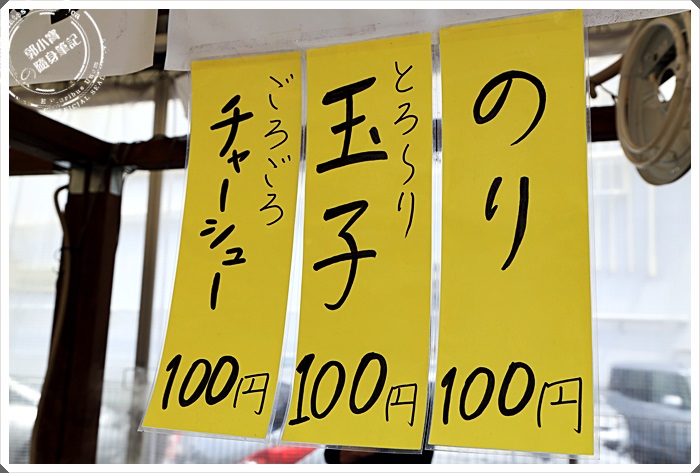 のり
100円
とろ〜り
玉子
100円
ごろごろ
チャーシュー
100円
郭小寶
の隨身筆記